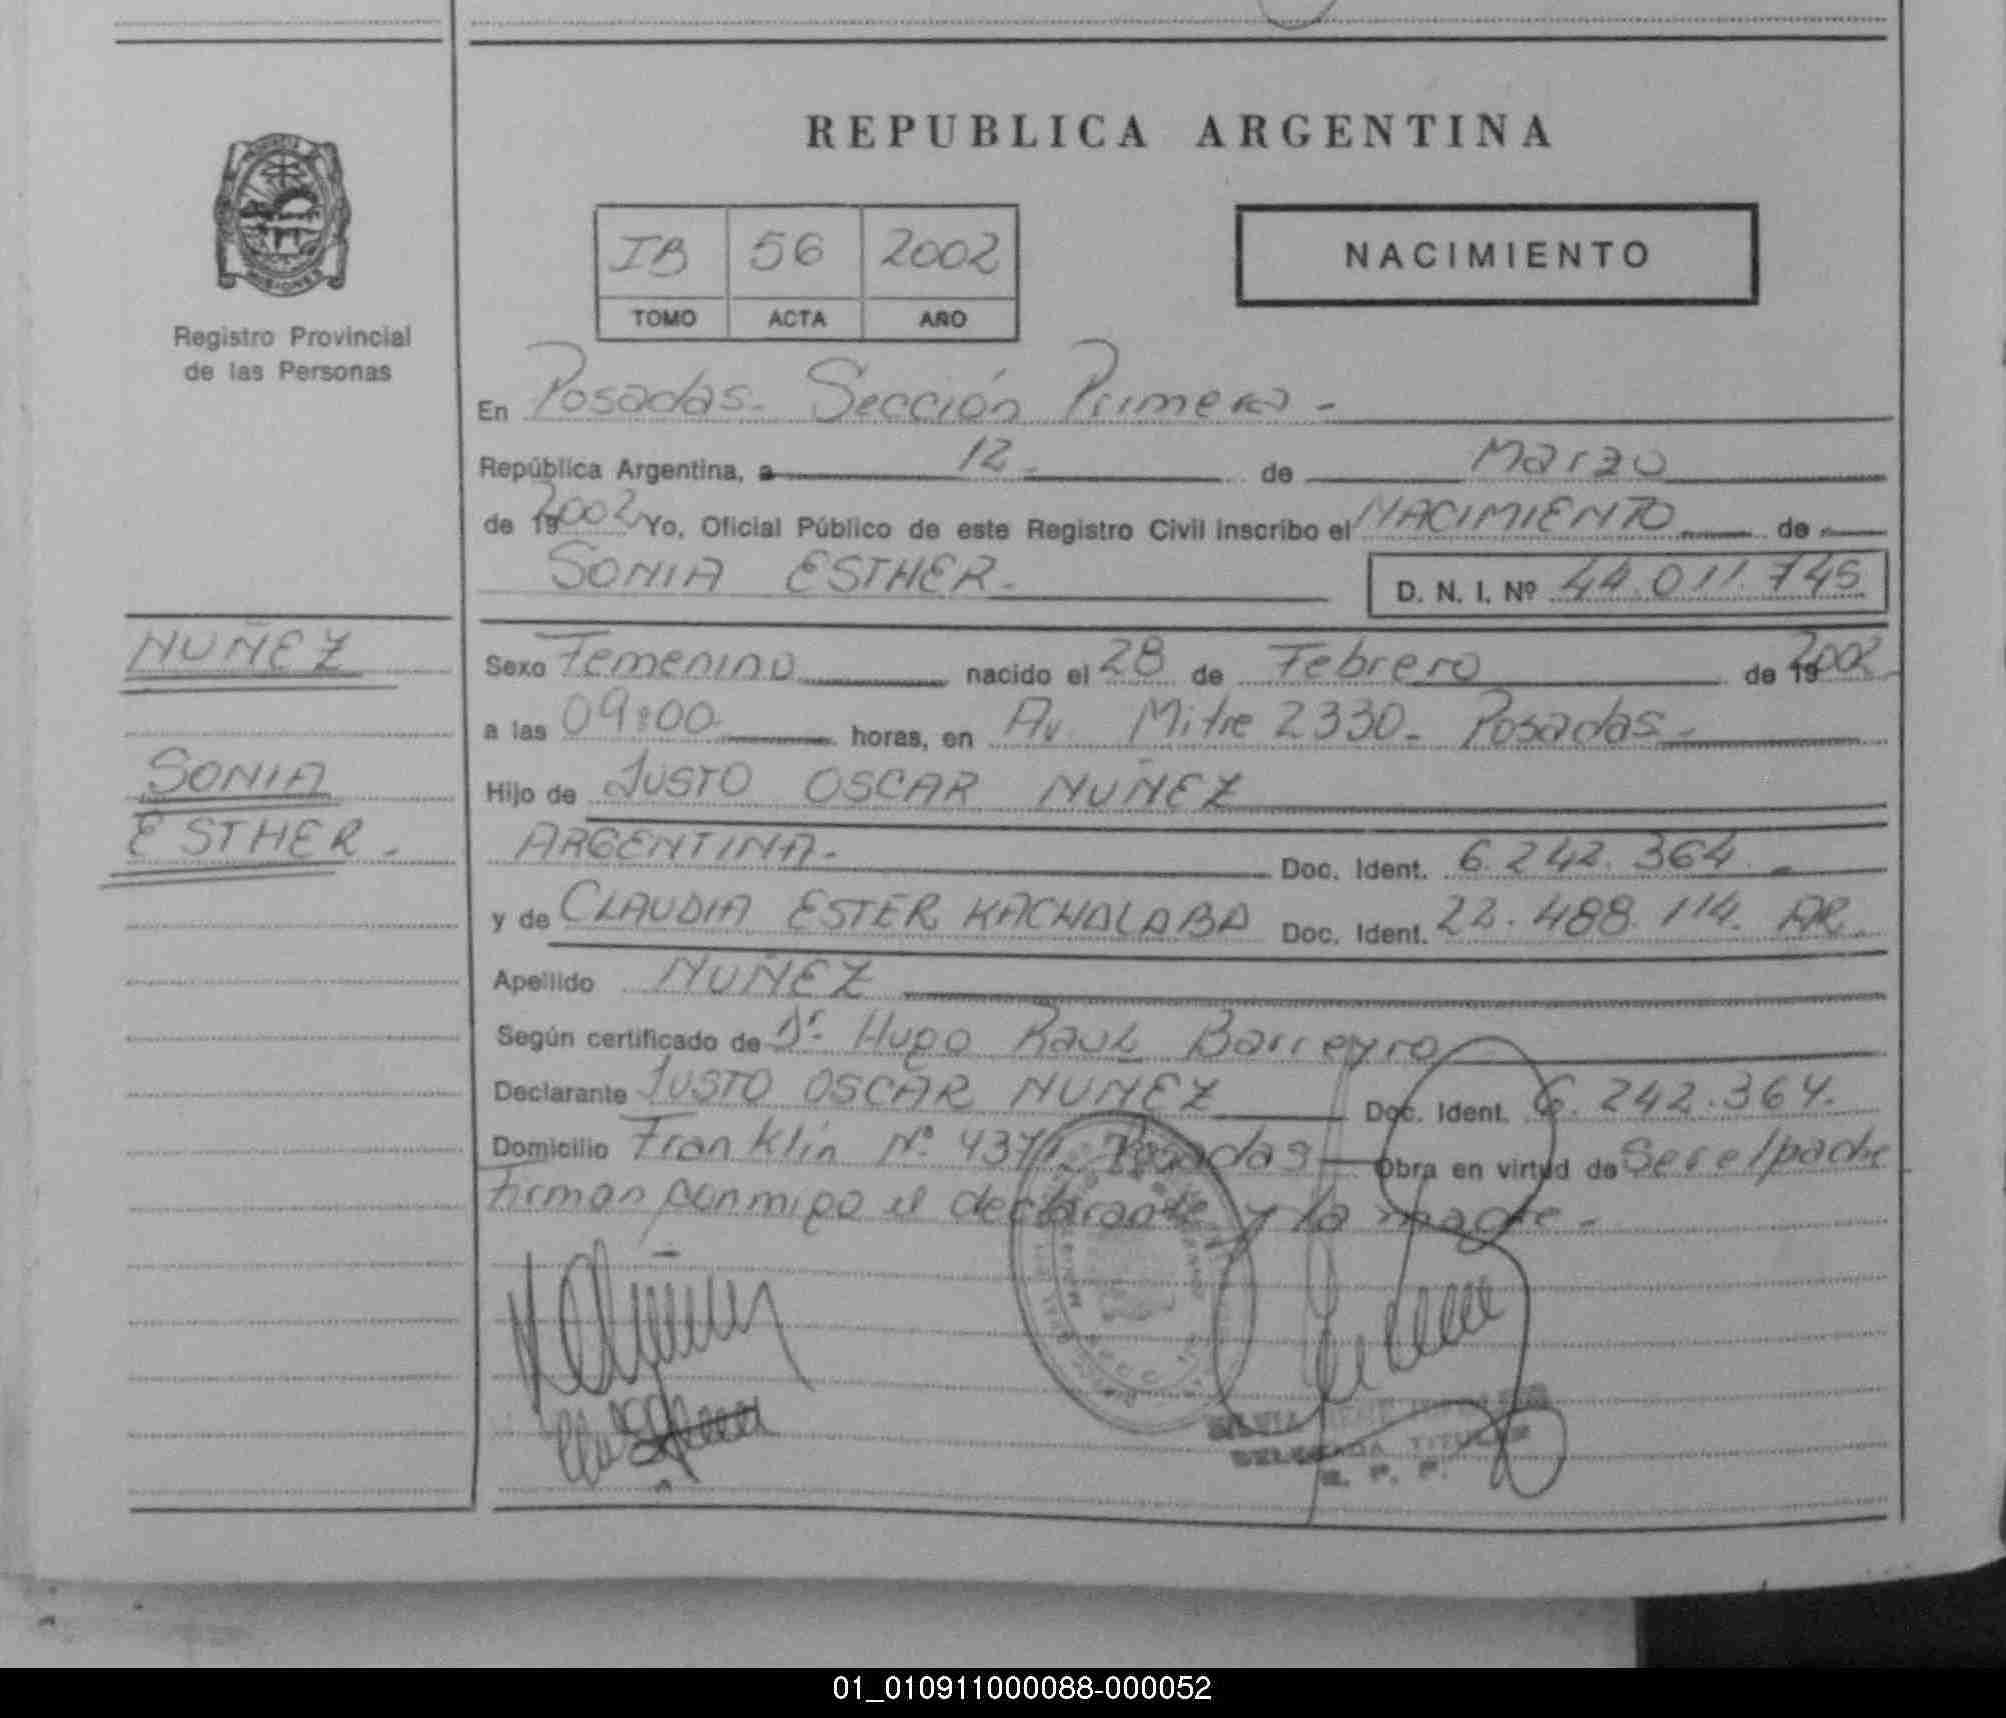 REPUBLICA ARGENTINA
MISIONES
Registro Provincial
de las Personas
IB 56 2002
TOMO ACTA AÑO
NACIMIENTO
En Posadas - Sección Primera -
República Argentina, a 12 - de Marzo
de 19 2002 Yo, Oficial Público de este Registro Civil inscribo el NACIMIENTO de
SONIA ESTHER - D. N. I. Nº 44.011.745
NUÑEZ
SONIA
ESTHER -
Sexo Femenino nacido el 28 de Febrero de 19 2002
a las 09:00 horas, en Av. Mitre 2330 - Posadas -
Hijo de JUSTO OSCAR NUÑEZ
ARGENTINA - Doc. Ident. 6.242.364 -
y de CLAUDIA ESTER KACHALABA Doc. Ident. 22.488.114. AR.
Apellido NUÑEZ
Según certificado de Dr. Hugo Raul Barreyro
Declarante JUSTO OSCAR NUÑEZ Doc. Ident. 6.242.364.
Domicilio Franklin Nº Posadas - Obra en virtud de Ser el padre
Firman conmigo el declarante y la madre -
DELEGADA TITULAR
R. P. P.
01_010911000088-000052